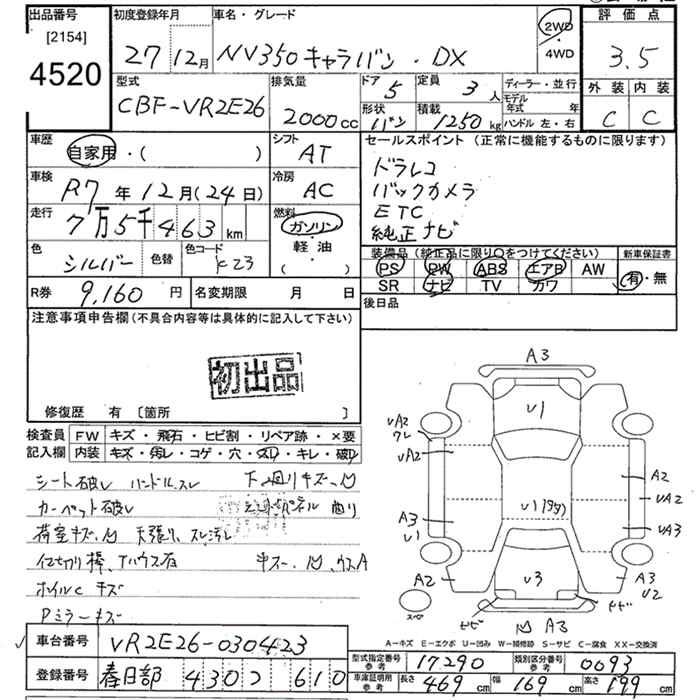 出品番号 初度登録年月 車名・グレード 評価点
[2154] 2WD
4520 27年12月 NV350キャラバン・DX 4WD 3.5
型式 排気量 ドア 5 定員 3人 ディーラー・並行 外装 内装
CBF-VR2E26 2000cc 形状 バン 積載 1250kg モデル年式 年 C C
ハンドル 左・右
車歴 シフト セールスポイント (正常に機能するものに限ります)
自家用・( ) AT ドラレコ
車検 冷房 バックカメラ
R7年12月(24日) AC ETC
走行 燃料 純正ナビ
7万5千463km ガソリン・
色 色替 色コード 軽油 装備品 (純正品に限り○をつけてください) 新車保証書
シルバー K23 ( ) PS PW ABS エアB AW 有・無
R券 9,160円 名変期限 月 日 SR ナビ TV カワ
後日品
注意事項申告欄 (不具合内容等は具体的に記入して下さい)
初出品
修復歴 有 〔箇所 〕
検査員 FW キズ・飛石・ヒビ割・リペア跡・×要
記入欄 内装 キズ・汚レ・コゲ・穴・スレ・キレ・破レ
シート破レ ハンドルスレ 下回りキズ凹
カーペット破レ 曲り
荷室キズ凹 天張り スレ汚レ
ホイルC キズ
Pミラーキズ
A3
U1
UA2
ワレ
UA2
A3
U1
A2
A2
UA2
UA3
A3
U2
U3
スペア
ナビ ナビ
凹 A3
A-キズ E-エクボ U-凹み W-補修跡 S-サビ C-腐食 XX-交換済
車台番号 VR2E26-030423
型式指定番号 参考 17290 類別区分番号 参考 0693
登録番号 春日部 430 つ 610
車庫証明用 参考 長さ 469cm 幅 169cm 高さ 199cm